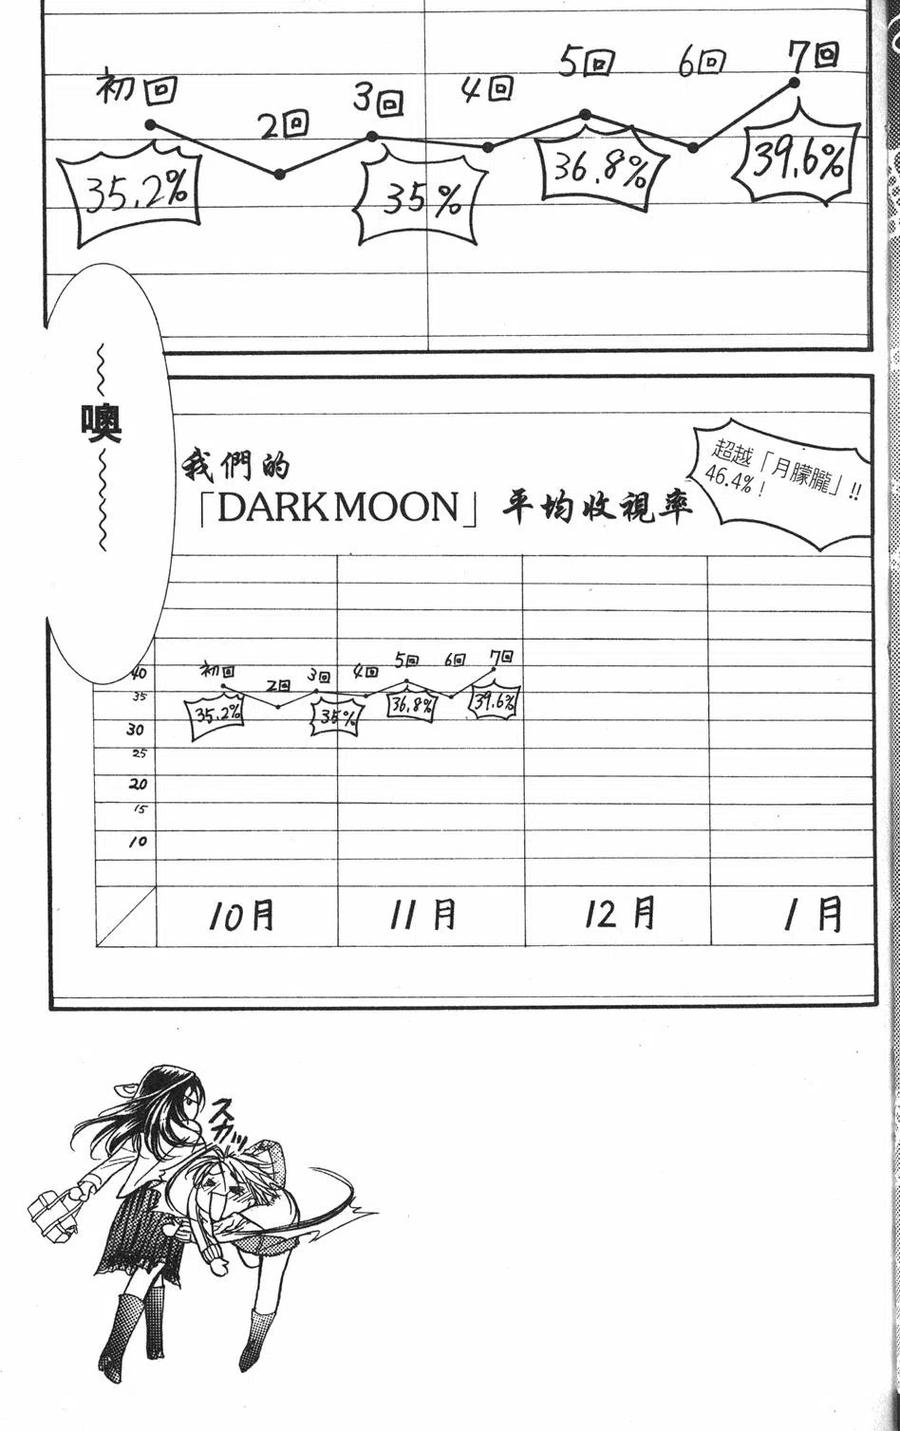 初回
2回
3回
4回
5回
6回
7回
35.2%
35%
36.8%
39.6%
噢
我們的
「DARK MOON」平均收視率
超越「月朦朧」!!
46.4%!
初回
2回
3回
4回
5回
6回
7回
35.2%
35%
36.8%
39.6%
40
35
30
25
20
15
10
10月
11月
12月
1月
スカッ